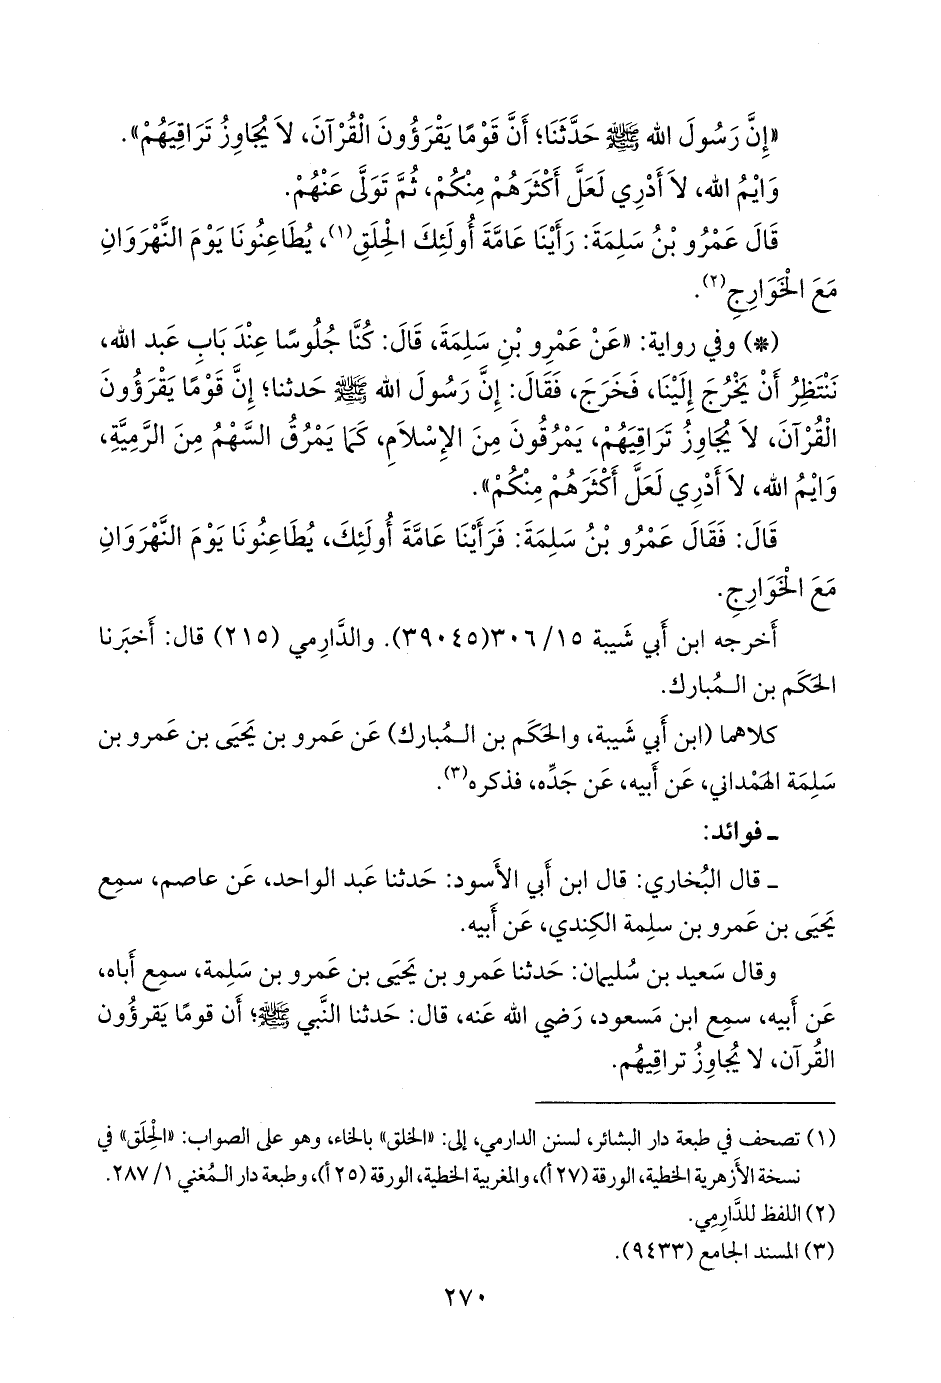 «إِنَّ رَسُولَ الله ﷺ حَدَّثَنَا؛ أَنَّ قَوْمًا يَقْرَؤُونَ الْقُرْآنَ، لاَ يُجَاوِزُ تَرَاقِيَهُمْ».
وَايْمُ الله، لاَ أَدْرِي لَعَلَّ أَكْثَرَهُمْ مِنْكُمْ، ثُمَّ تَوَلَّى عَنْهُمْ.
قَالَ عَمْرُو بْنُ سَلِمَةَ: رَأَيْنَا عَامَّةَ أُولَئِكَ الْحِلَقِ(١)، يُطَاعِنُونَا يَوْمَ النَّهْرَوَانِ
مَعَ الْخَوَارِجِ(٢).
(*) وفي رواية: «عَنْ عَمْرِو بْنِ سَلِمَةَ، قَالَ: كُنَّا جُلُوسًا عِنْدَ بَابِ عَبد الله،
نَنْتَظِرُ أَنْ يَخْرُجَ إِلَيْنَا، فَخَرَجَ، فَقَالَ: إِنَّ رَسُولَ الله ﷺ حَدثنا؛ إِنَّ قَوْمًا يَقْرَؤُونَ
الْقُرْآنَ، لاَ يُجَاوِزُ تَرَاقِيَهُمْ، يَمْرُقُونَ مِنَ الإِسْلاَمِ، كَمَا يَمْرُقُ السَّهْمُ مِنَ الرَّمِيَّةِ،
وَايْمُ الله، لاَ أَدْرِي لَعَلَّ أَكْثَرَهُمْ مِنْكُمْ».
قَالَ: فَقَالَ عَمْرُو بْنُ سَلِمَةَ: فَرَأَيْنَا عَامَّةَ أُولَئِكَ، يُطَاعِنُونَا يَوْمَ النَّهْرَوَانِ
مَعَ الْخَوَارِجِ.
أَخرجه ابن أَبي شَيبة ١٥/ ٣٠٦(٣٩٠٤٥). والدَّارِمي (٢١٥) قال: أَخبَرنا
الحَكَم بن المُبارك.
كلاهما (ابن أَبي شَيبة، والحَكَم بن المُبارك) عَن عَمرو بن يَحيَى بن عَمرو بن
سَلِمَة الهَمْداني، عَن أَبيه، عَن جَدِّه، فذكره(٣).
ـ فوائد:
ـ قال البُخاري: قال ابن أَبي الأَسود: حَدثنا عَبد الواحد، عَن عاصم، سمع
يَحيَى بن عَمرو بن سلِمة الكِندي، عَن أَبيه.
وقال سَعيد بن سُليمان: حَدثنا عَمرو بن يَحيَى بن عَمرو بن سَلِمة، سمِع أَباه،
عَن أَبيه، سمِع ابن مَسعود، رَضي الله عَنه، قال: حَدثنا النَّبي ﷺ؛ أَن قومًا يَقرؤُون
القُرآن، لا يُجاوِزُ تراقِيهُم.
(١) تصحف في طبعة دار البشائر، لسنن الدارمي، إلى: «الخلق» بالخاء، وهو على الصواب: «الْحِلَق» في
نسخة الأَزهرية الخطية، الورقة (٢٧ أ)، والمغربية الخطية، الورقة (٢٥ أ)، وطبعة دار المُغني ١/ ٢٨٧.
(٢) اللفظ للدَّارِمِي.
(٣) المسند الجامع (٩٤٣٣).
٢٧٠